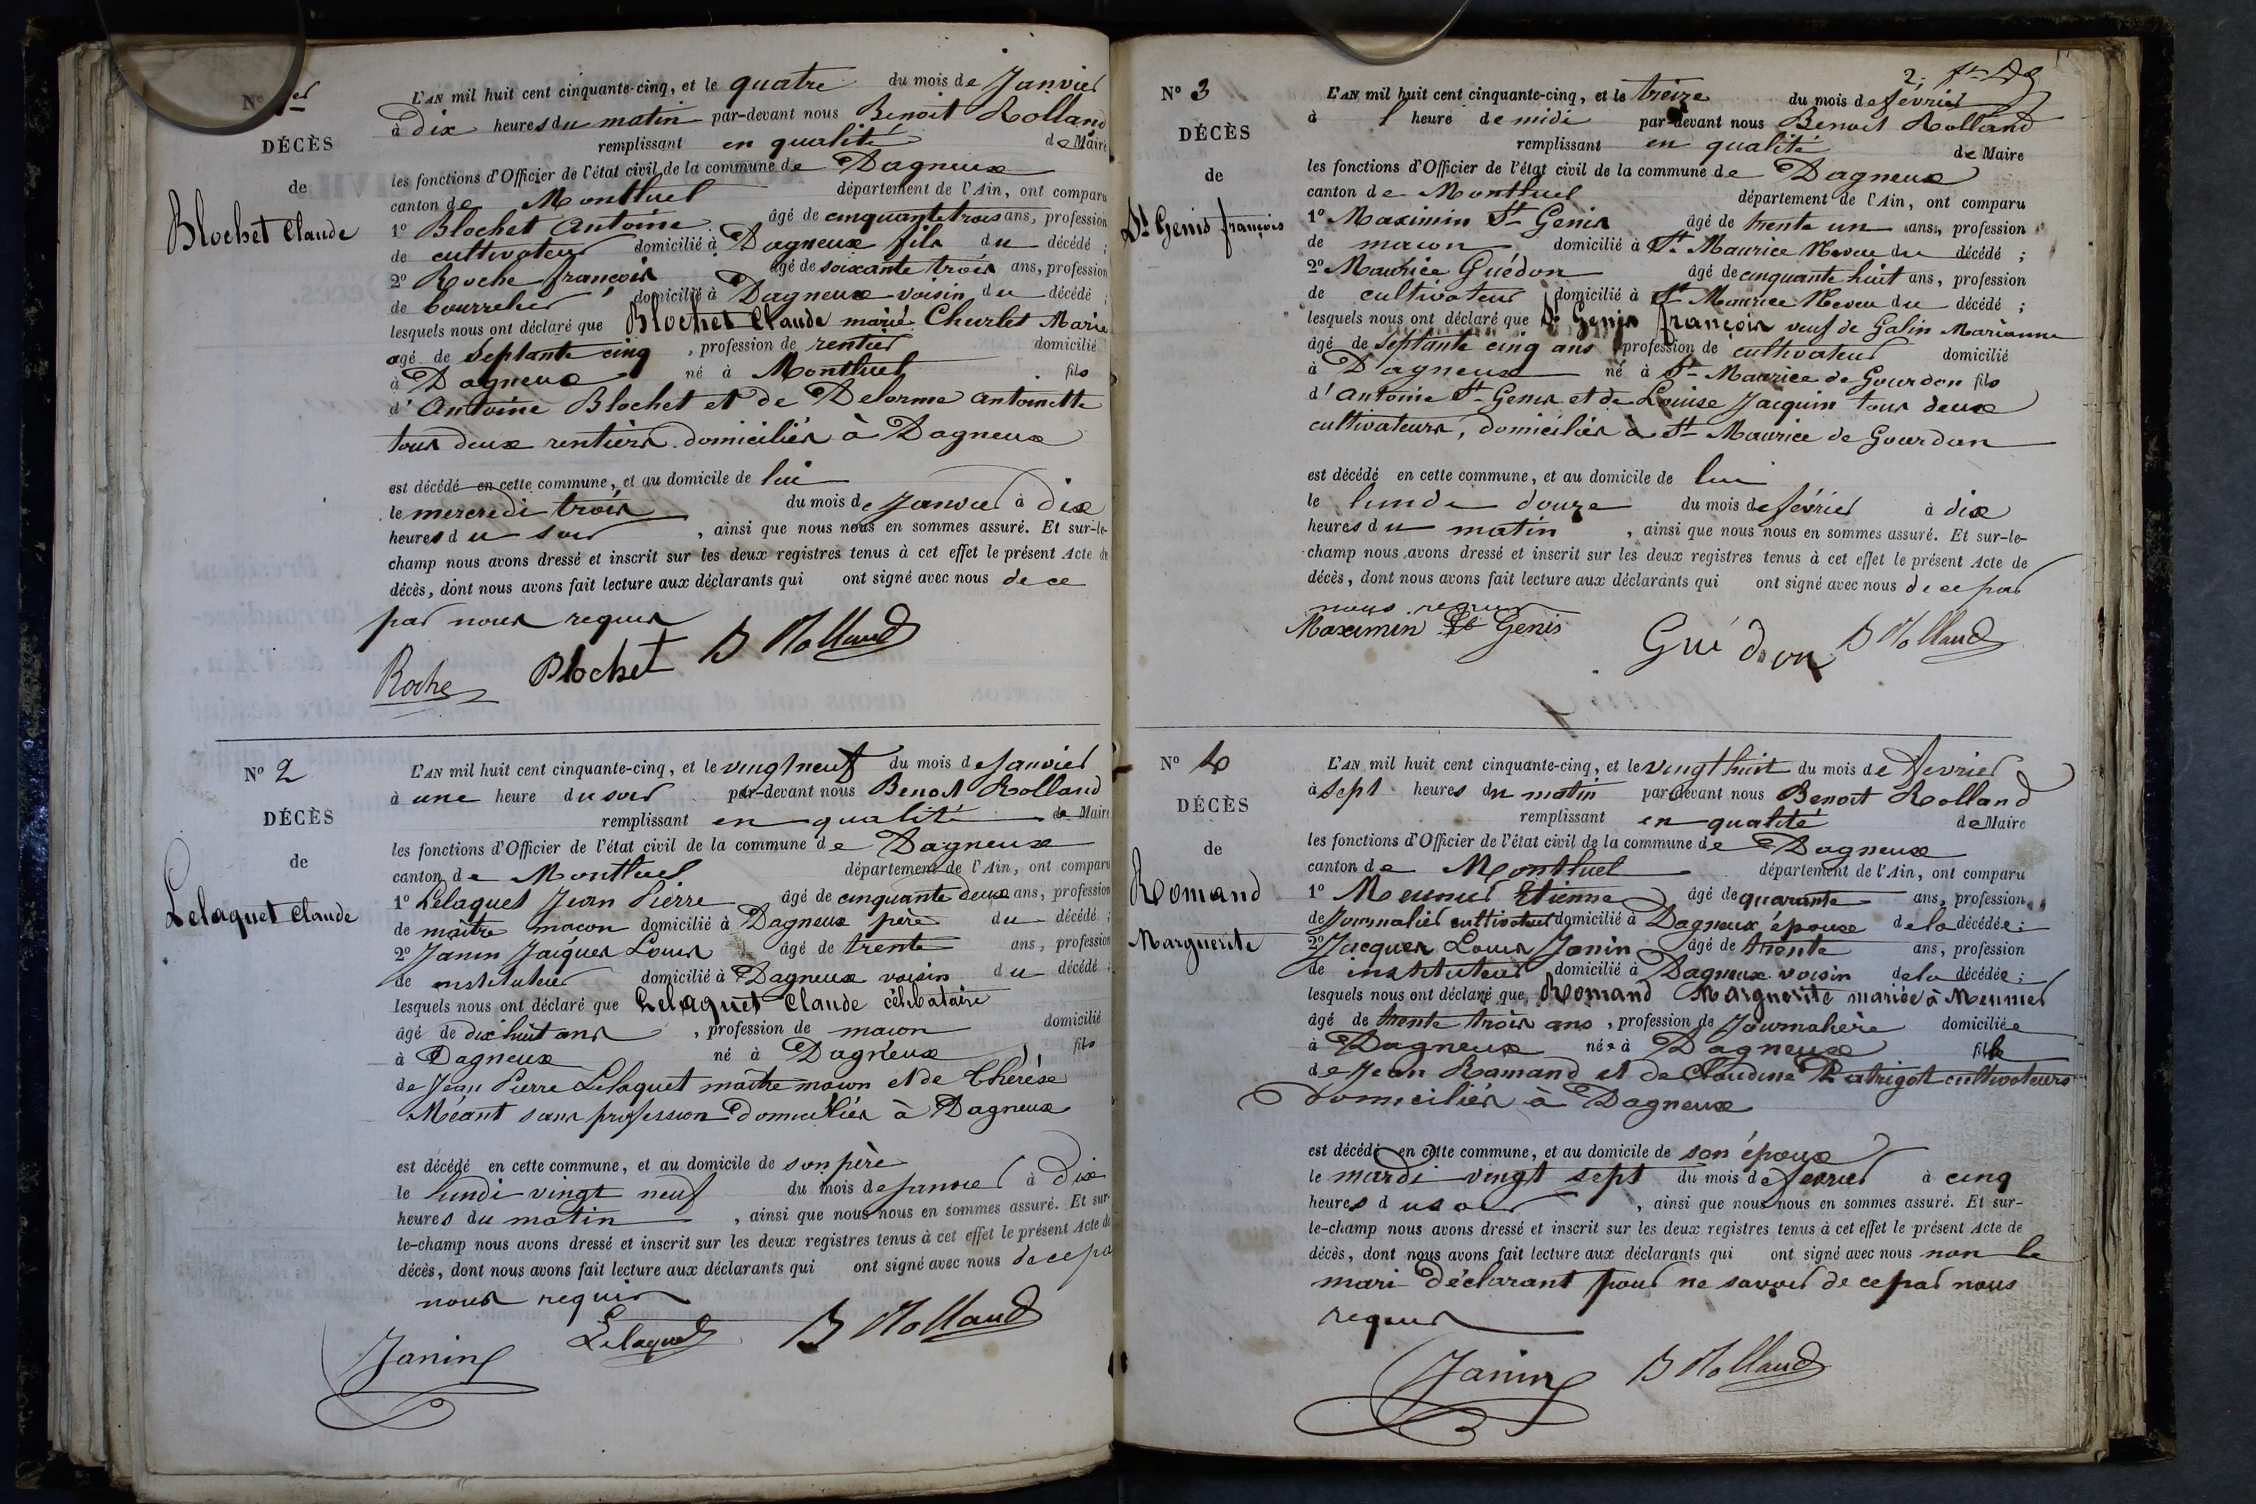 Nº 1er
DÉCÈS
de
Blochet Claude
L'AN mil huit cent cinquante-cinq, et le quatre du mois de Janvier
à dix heures du matin par-devant nous Benoit Rolland
remplissant en qualité de Maire
les fonctions d'Officier de l'état civil de la commune de Dagneux
canton de Montluel département de l'Ain, ont comparu
1º Blochet Antoine âgé de cinquante trois ans, profession
de cultivateur domicilié à Dagneux fils du décédé ;
2º Roche françois âgé de soixante trois ans, profession
de bourrelier domicilié à Dagneux voisin du décédé ;
lesquels nous ont déclaré que Blochet Claude marié Churlet Marie
agé de septante cinq, profession de rentier domicilié
à Dagneux né à Montluel fils
d'Antoine Blochet et de Delorme Antoinette
tous deux rentiers domiciliés à Dagneux
est décédé en cette commune, et au domicile de lui
le mercredi trois du mois de Janvier à dix
heures du soir, ainsi que nous nous en sommes assuré. Et sur-le-
champ nous avons dressé et inscrit sur les deux registres tenus à cet effet le présent Acte de
décès, dont nous avons fait lecture aux déclarants qui ont signé avec nous de ce
par nous requis
Roche Blochet B Rolland
Nº 2
DÉCÈS
de
Lelaquet Claude
L'AN mil huit cent cinquante-cinq, et le vingt neuf du mois de Janvier
à une heure du soir par-devant nous Benoit Rolland
remplissant en qualité de Maire
les fonctions d'Officier de l'état civil de la commune de Dagneux
canton de Montluel département de l'Ain, ont comparu
1º Lelaquet Jean Pierre âgé de cinquante deux ans, profession
de maître macon domicilié à Dagneux père du décédé ;
2º Janin Jacques Louis âgé de trente ans, profession
de instituteur domicilié à Dagneux voisin du décédé ;
lesquels nous ont déclaré que Lelaquet Claude célibataire
âgé de dix huit ans, profession de macon domicilié
à Dagneux né à Dagneux, fils
de Jean Pierre Lelaquet maître macon et de Thérèse
Méant sans profession domiciliés à Dagneux
est décédé en cette commune, et au domicile de son père
le lundi vingt neuf du mois de janvier à dix
heures du matin, ainsi que nous nous en sommes assuré. Et sur-
le-champ nous avons dressé et inscrit sur les deux registres tenus à cet effet le présent Acte de
décès, dont nous avons fait lecture aux déclarants qui ont signé avec nous de ce par
nous requis
Janin Lelaquet B Rolland
2.
Nº 3
DÉCÈS
de
St Genis françois
L'AN mil huit cent cinquante-cinq, et le treize du mois de février
à 1 heure de midi par-devant nous Benoit Rolland
remplissant en qualité de Maire
les fonctions d'Officier de l'état civil de la commune de Dagneux
canton de Montluel département de l'Ain, ont comparu
1º Maximin St Genis âgé de trente un ans, profession
de macon domicilié à St Maurice Neveu du décédé ;
2º Maurice Guédon âgé de cinquante huit ans, profession
de cultivateur domicilié à St Maurice Neveu du décédé ;
lesquels nous ont déclaré que St Genis françois veuf de Galin Marianne
âgé de septante cinq ans profession de cultivateur domicilié
à Dagneux né à St Maurice de Gourdon fils
d'Antoine St Genis et de Louise Jacquin tous deux
cultivateurs, domiciliés à St Maurice de Gourdan
est décédé en cette commune, et au domicile de lui
le lundi douze du mois de février à dix
heures du matin, ainsi que nous nous en sommes assuré. Et sur-le-
champ nous avons dressé et inscrit sur les deux registres tenus à cet effet le présent Acte de
décès, dont nous avons fait lecture aux déclarants qui ont signé avec nous de ce par
nous requis
Maximin St Genis Guédon B Rolland
Nº 4
DÉCÈS
de
Romand
Marguerite
L'AN mil huit cent cinquante-cinq, et le vingt huit du mois de fevrier
à sept heures du matin par-devant nous Benoit Rolland
remplissant en qualité de Maire
les fonctions d'Officier de l'état civil de la commune de Dagneux
canton de Montluel département de l'Ain, ont comparu
1º Meunier Etienne âgé de quarante ans, profession
de Journalier cultivateur domicilié à Dagneux époux de la décédée ;
2º Jacques Louis Janin âgé de trente ans, profession
de instituteur domicilié à Dagneux voisin de la décédée ;
lesquels nous ont déclaré que Romand Marguerite mariée à Meunier
âgé de trente trois ans, profession de Journalière domiciliée
à Dagneux née à Dagneux fille
de Jean Romand et de Claudine cultivateurs
Domiciliés à Dagneux
est décédé en cette commune, et au domicile de son époux
le mardi vingt sept du mois de fevrier à cinq
heures du soir, ainsi que nous nous en sommes assuré. Et sur-
le-champ nous avons dressé et inscrit sur les deux registres tenus à cet effet le présent Acte de
décès, dont nous avons fait lecture aux déclarants qui ont signé avec nous non le
mari déclarant pour ne savoir de ce par nous
requis
Janin B Rolland